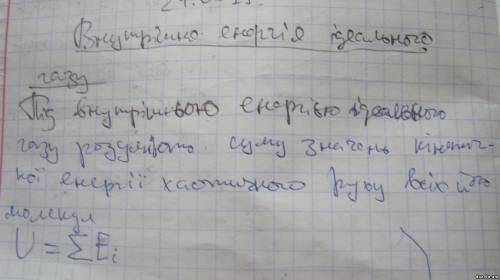 Внутрішня енергія ідеального
газу
Під внутрішньою енергією ідеального
газу розуміють суму значень кінетич-
ної енергії хаотичного руху всіх його
молекул
U = ΣEi